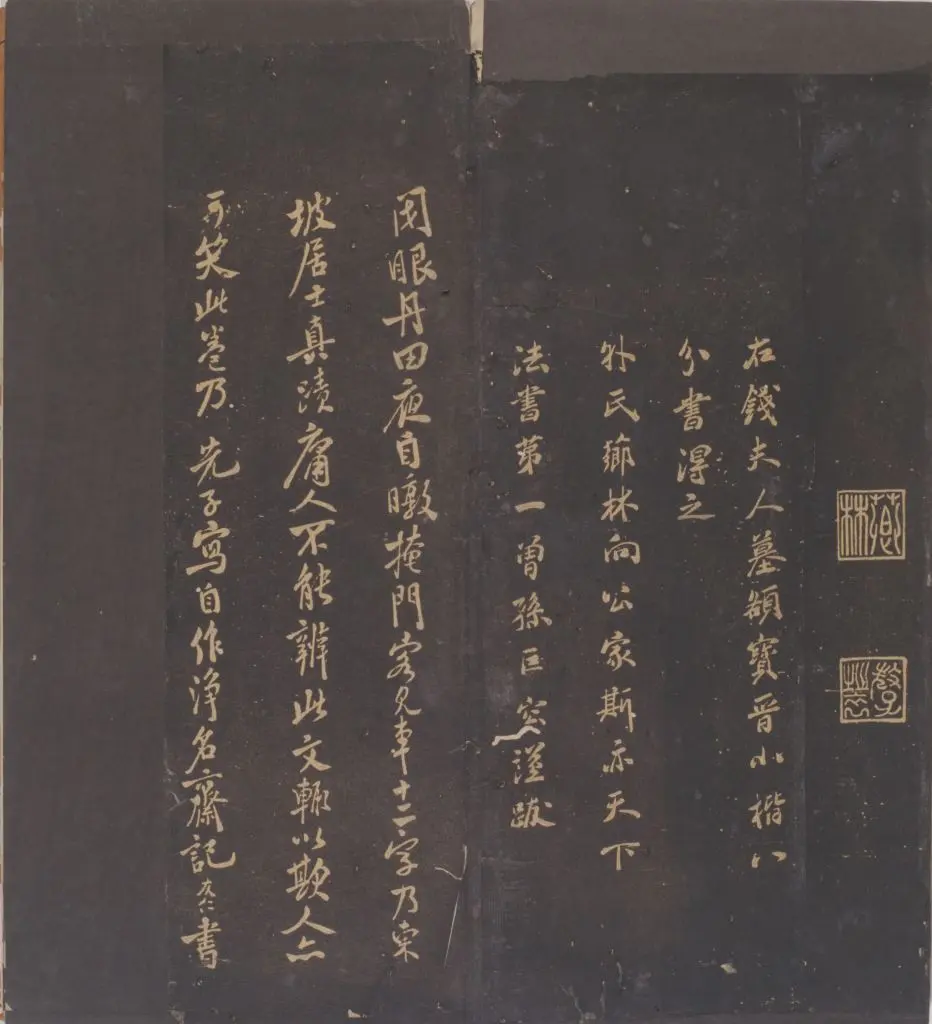 右錢夫人墓額寶晉小楷八
分書得之
外氏薌林向公家斯亦天下
法書第一曾孫巨容謹跋
閉眼丹田夜自暾掩門客見車十二字乃東
坡居士真蹟庸人不能辨此文輒以欺人亦
可笑此卷乃先子寫自作淨名齋記友仁書